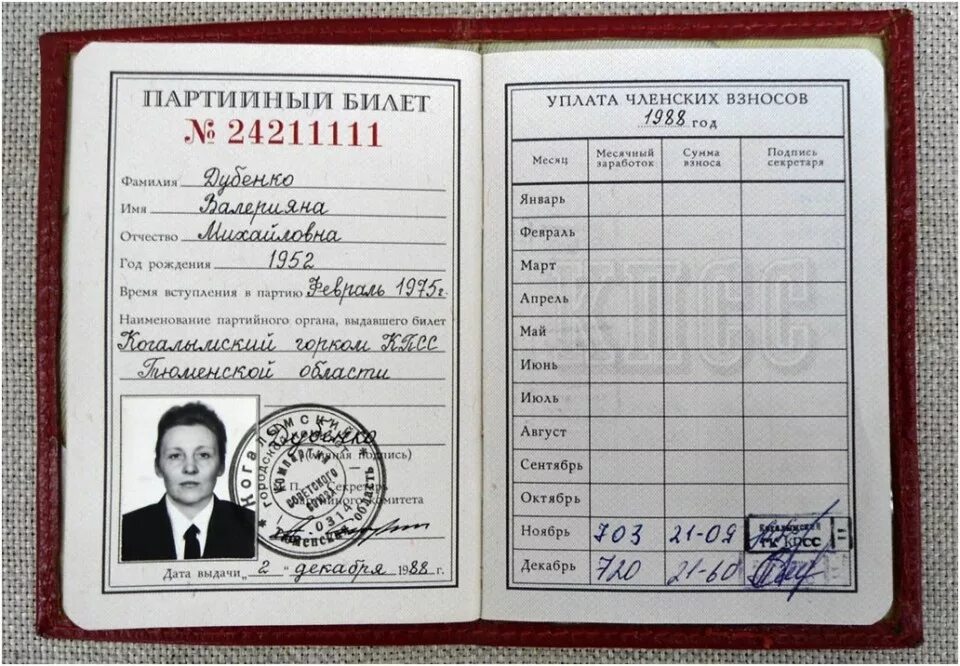 ПАРТИЙНЫЙ БИЛЕТ
№ 24211111
Фамилия Дубенко
Имя Валерияна
Отчество Михайловна
Год рождения 1952
Время вступления в партию Февраль 1975г.
Наименование партийного органа, выдавшего билет
Когалымский горком КПСС
Тюменской области
Дубенко
(личная подпись)
М. П. Секретарь
комитета
Когалымский
городской
Компартии
Советского
Союза
0314
Тюменская область
Дата выдачи „2“ декабря 1988 г.
УПЛАТА ЧЛЕНСКИХ ВЗНОСОВ
1988 год
Месяц Месячный заработок Сумма взноса Подпись секретаря
КПСС
Январь
Февраль
Март
Апрель
Май
Июнь
Июль
Август
Сентябрь
Октябрь
Ноябрь 703 21-09
Когалымский
ГК КПСС
Декабрь 720 21-60